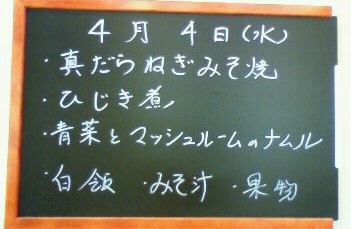 4月4日(水)
・真だらねぎみそ焼
・ひじき煮
・青菜とマッシュルームのナムル
・白飯 ・みそ汁 ・果物